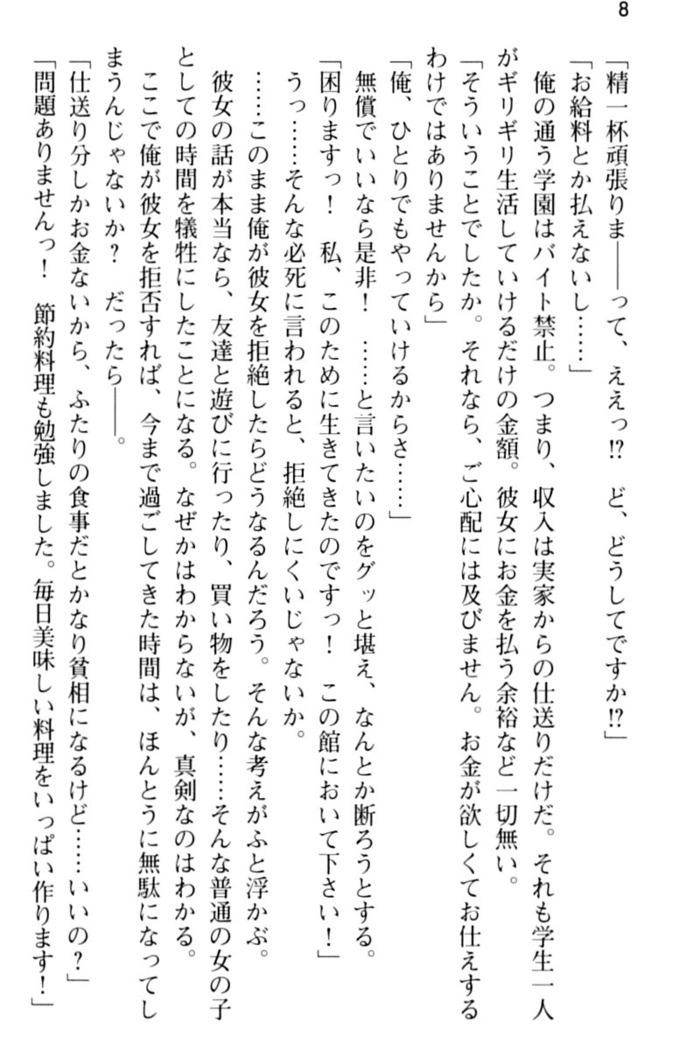 8
「精一杯頑張りま――って、ええっ!? ど、どうしてですか!?」
「お給料とか払えないし……」
俺の通う学園はバイト禁止。つまり、収入は実家からの仕送りだけだ。それも学生一人
がギリギリ生活していけるだけの金額。彼女にお金を払う余裕など一切無い。
「そういうことでしたか。それなら、ご心配には及びません。お金が欲しくてお仕えする
わけではありませんから」
「俺、ひとりでもやっていけるからさ……」
無償でいいなら是非! ……と言いたいのをグッと堪え、なんとか断ろうとする。
「困りますっ! 私、このために生きてきたのですっ! この館において下さい!」
うっ……そんな必死に言われると、拒絶しにくいじゃないか。
……このまま俺が彼女を拒絶したらどうなるんだろう。そんな考えがふと浮かぶ。
彼女の話が本当なら、友達と遊びに行ったり、買い物をしたり……そんな普通の女の子
としての時間を犠牲にしたことになる。なぜかはわからないが、真剣なのはわかる。
ここで俺が彼女を拒否すれば、今まで過ごしてきた時間は、ほんとうに無駄になってし
まうんじゃないか? だったら――。
「仕送り分しかお金ないから、ふたりの食事だとかなり貧相になるけど……いいの?」
「問題ありませんっ! 節約料理も勉強しました。毎日美味しい料理をいっぱい作ります!」